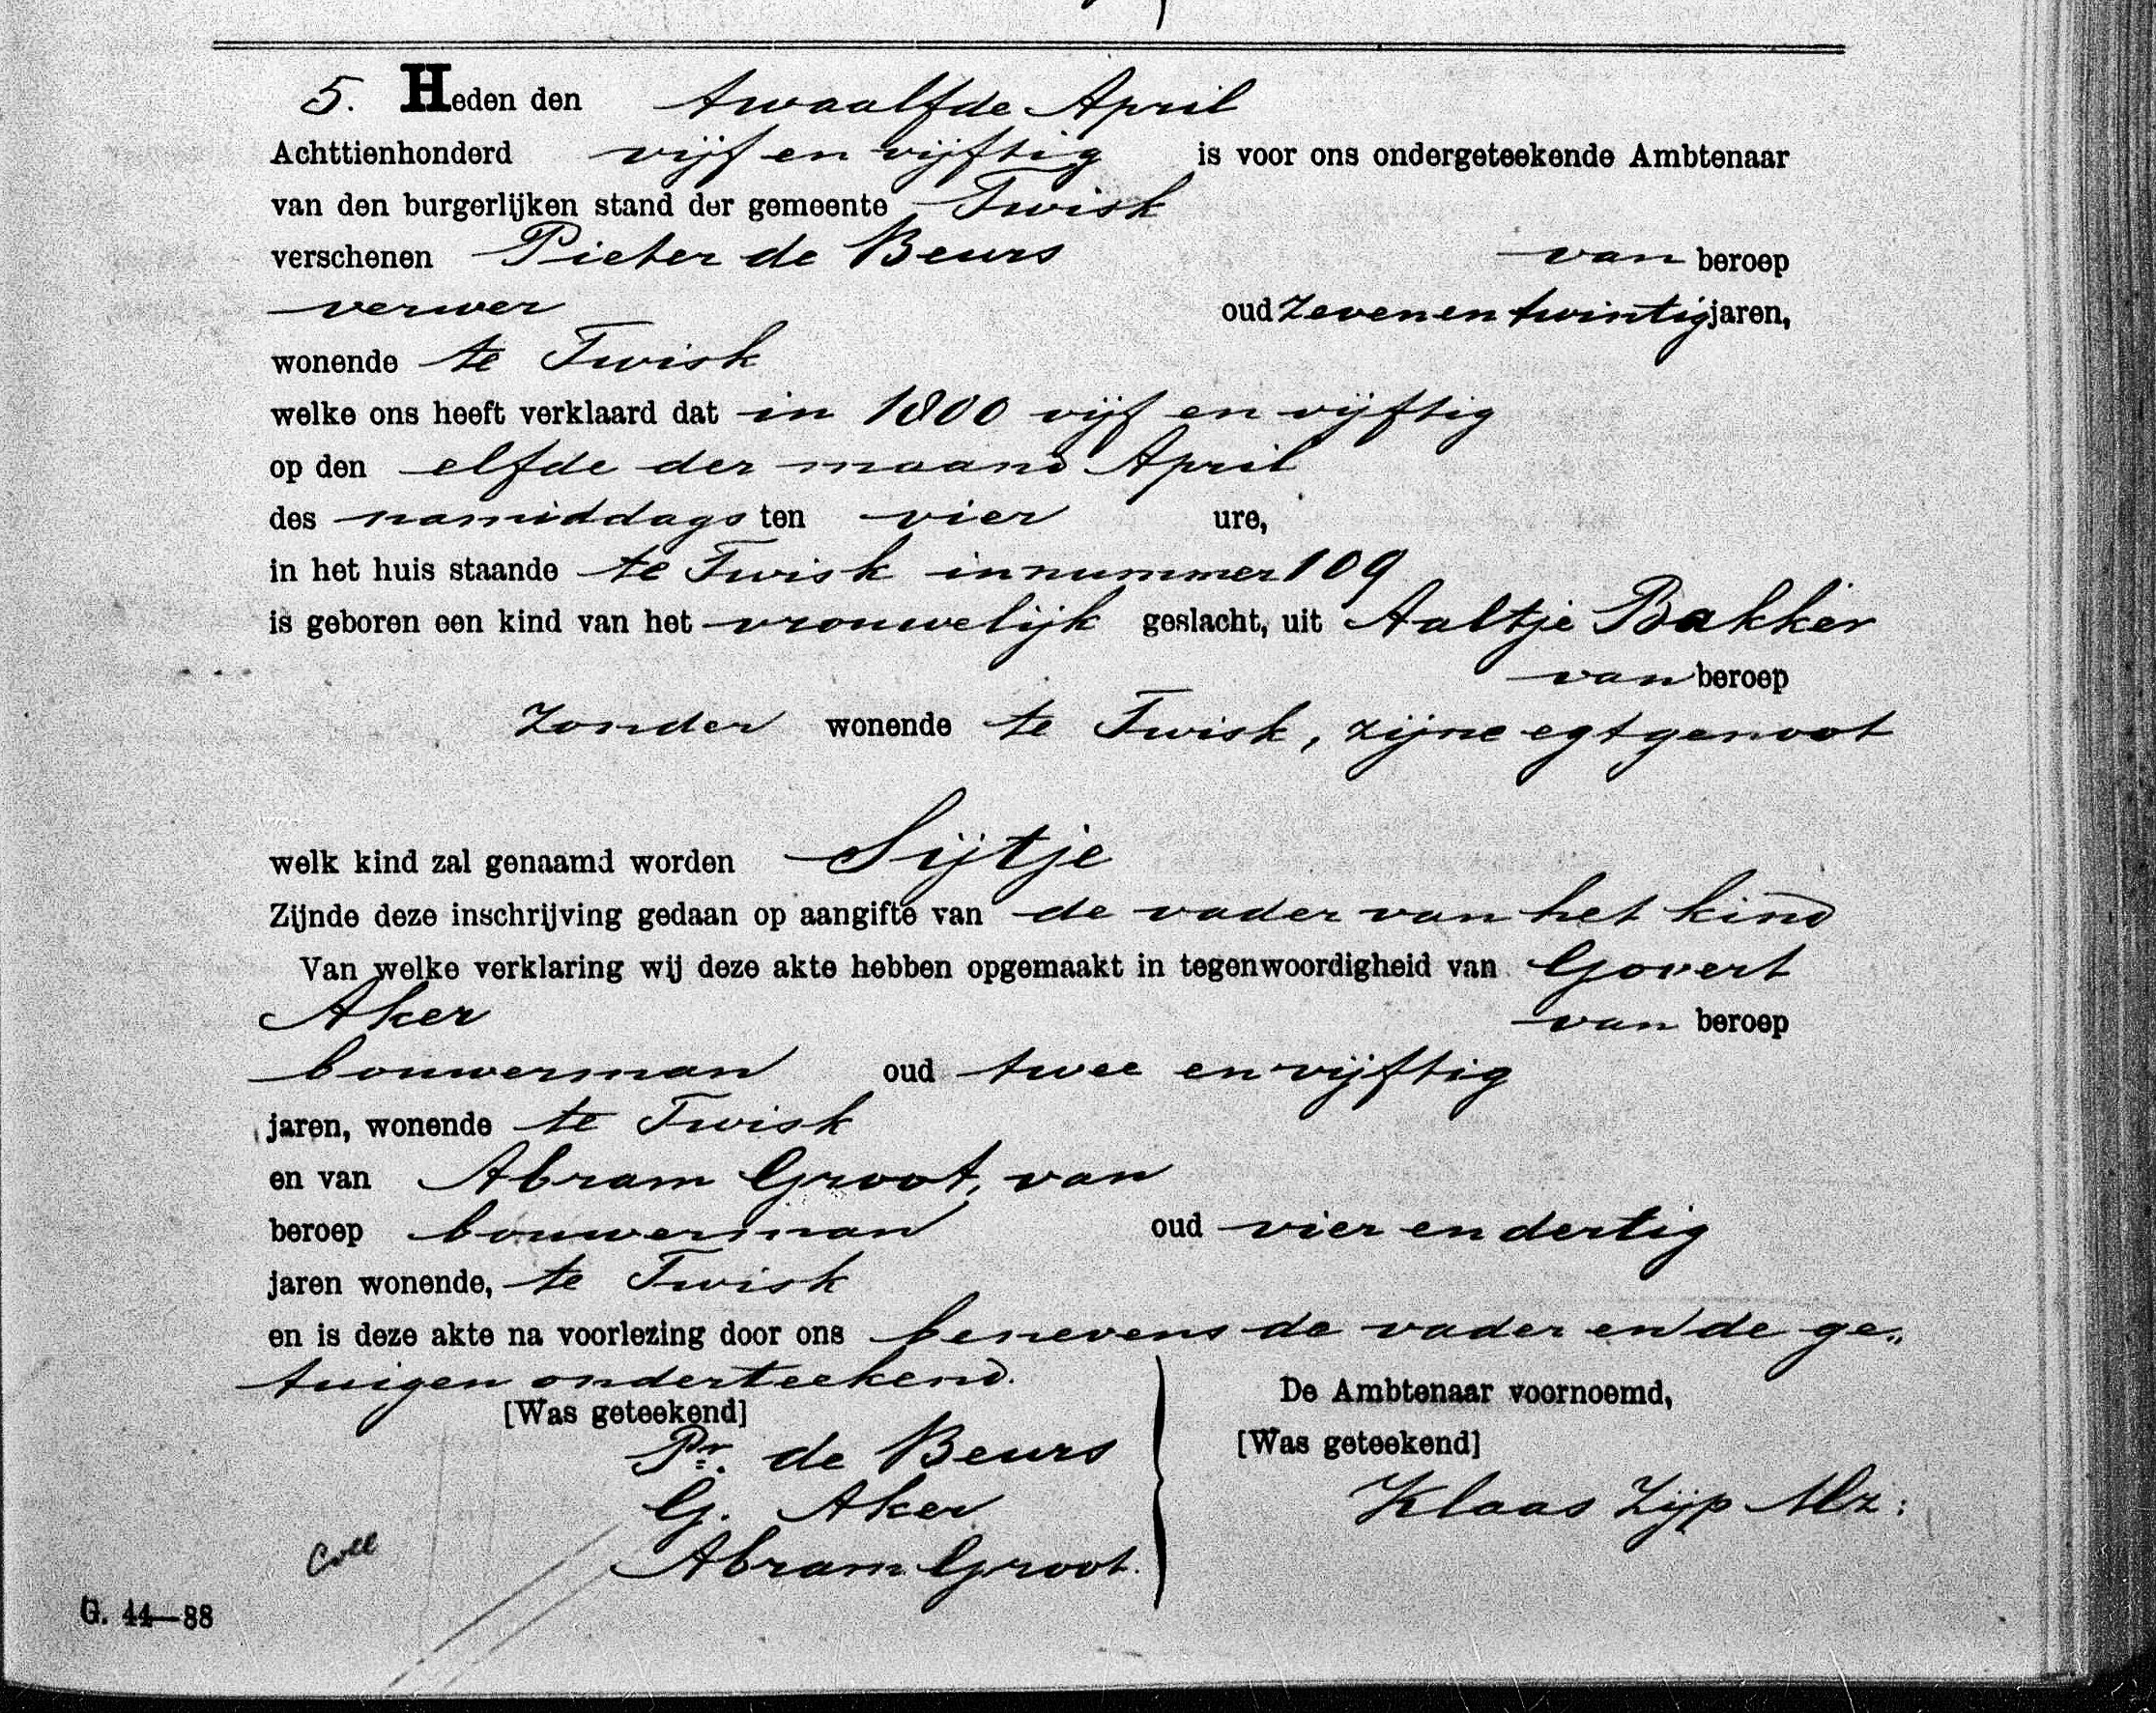 5. Heden den twaalfde April
Achttienhonderd vijf en vijftig is voor ons ondergeteekende Ambtenaar
van den burgerlijken stand der gemeente Twisk
verschenen Pieter de Beurs van beroep
verwer oud zeven en twintig jaren,
wonende te Twisk
welke ons heeft verklaard dat in 1800 vijf en vijftig
op den elfde der maand April
des namiddags ten vier ure,
in het huis staande te Twisk in nummer 109
is geboren een kind van het vrouwelijk geslacht, uit Aaltje Bakker
van beroep
zonder wonende te Twisk, zijne egtgenoot
welk kind zal genaamd worden Sijtje
Zijnde deze inschrijving gedaan op aangifte van de vader van het kind
Van welke verklaring wij deze akte hebben opgemaakt in tegenwoordigheid van Govert
Aker van beroep
bouwerman oud twee en vijftig
jaren, wonende te Twisk
en van Abram Groot, van
beroep bouwerman oud vier en dertig
jaren wonende, te Twisk
en is deze akte na voorlezing door ons benevens de vader en de ge„
tuigen onderteekend.
[Was geteekend]
Pr. de Beurs
G. Aker
Abram Groot.
De Ambtenaar voornoemd,
[Was geteekend]
Klaas Zijp Mz:
Coll
G. 44—88